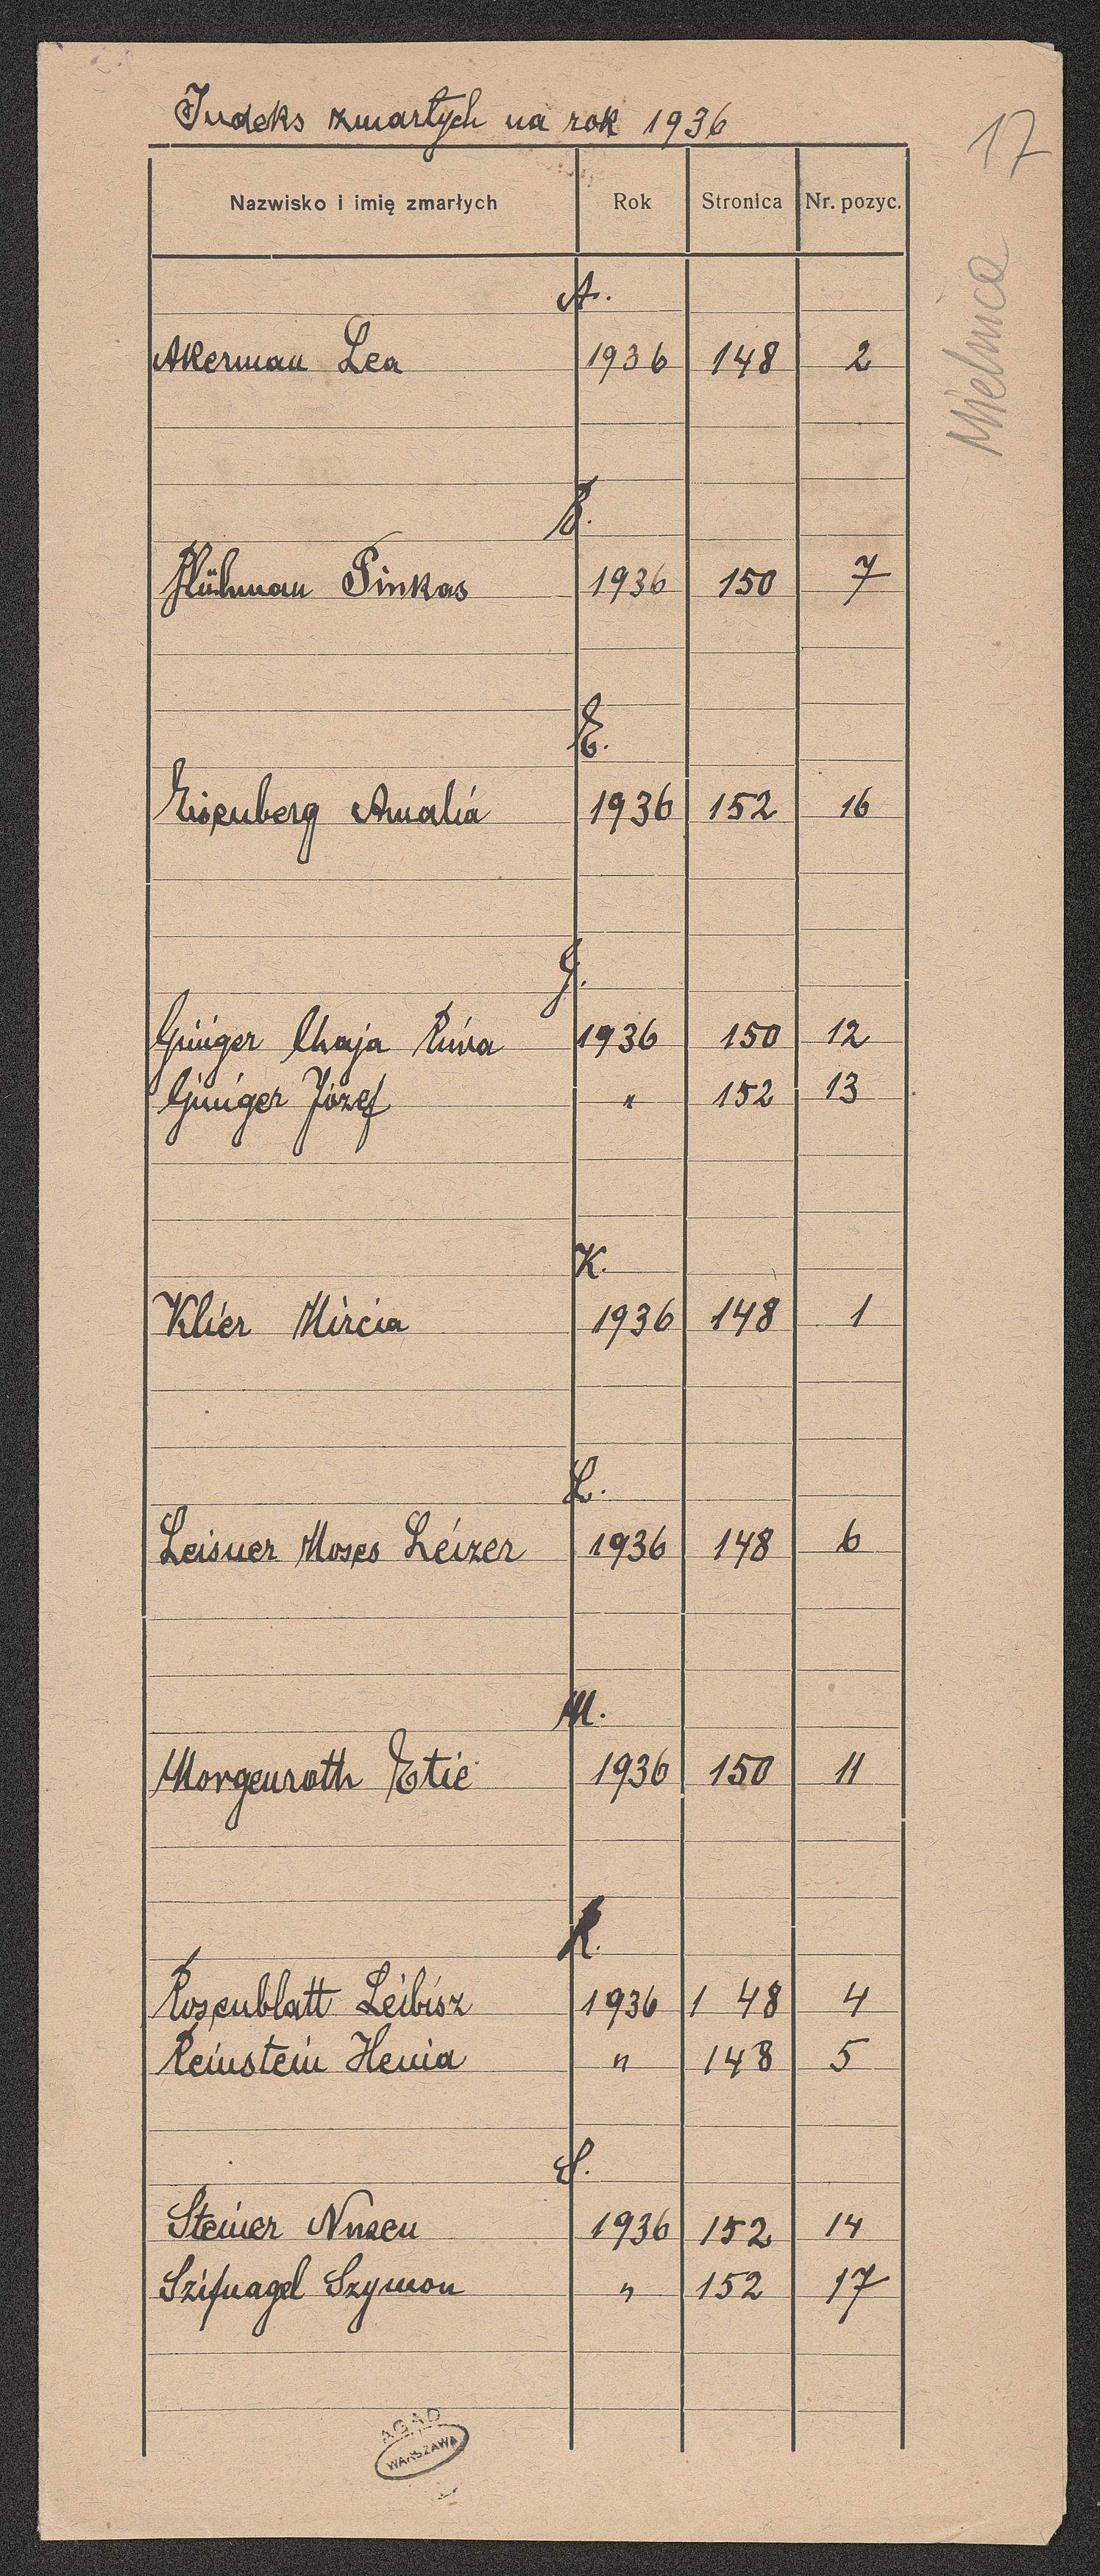 Indeks zmarłych na rok 1936
17
Mielnica
Nazwisko i imię zmarłych Rok Stronica Nr. pozyc.
A.
Akerman Lea 1936 148 2
B.
Pinkas 1936 150 7
E.
Eisenberg Amalia 1936 152 16
G.
Chaja 1936 150 12
Józef " 152 13
K.
Klier Mircia 1936 148 1
L.
Leisner Moses Leizer 1936 148 6
M.
Morgenroth Etie 1936 150 11
R.
Rosenblatt Leibisz 1936 148 4
Reinstein Henia " 148 5
S.
Steiner Nusen 1936 152 14
Szifnagel Szymon " 152 17
AGAD
WARSZAWA